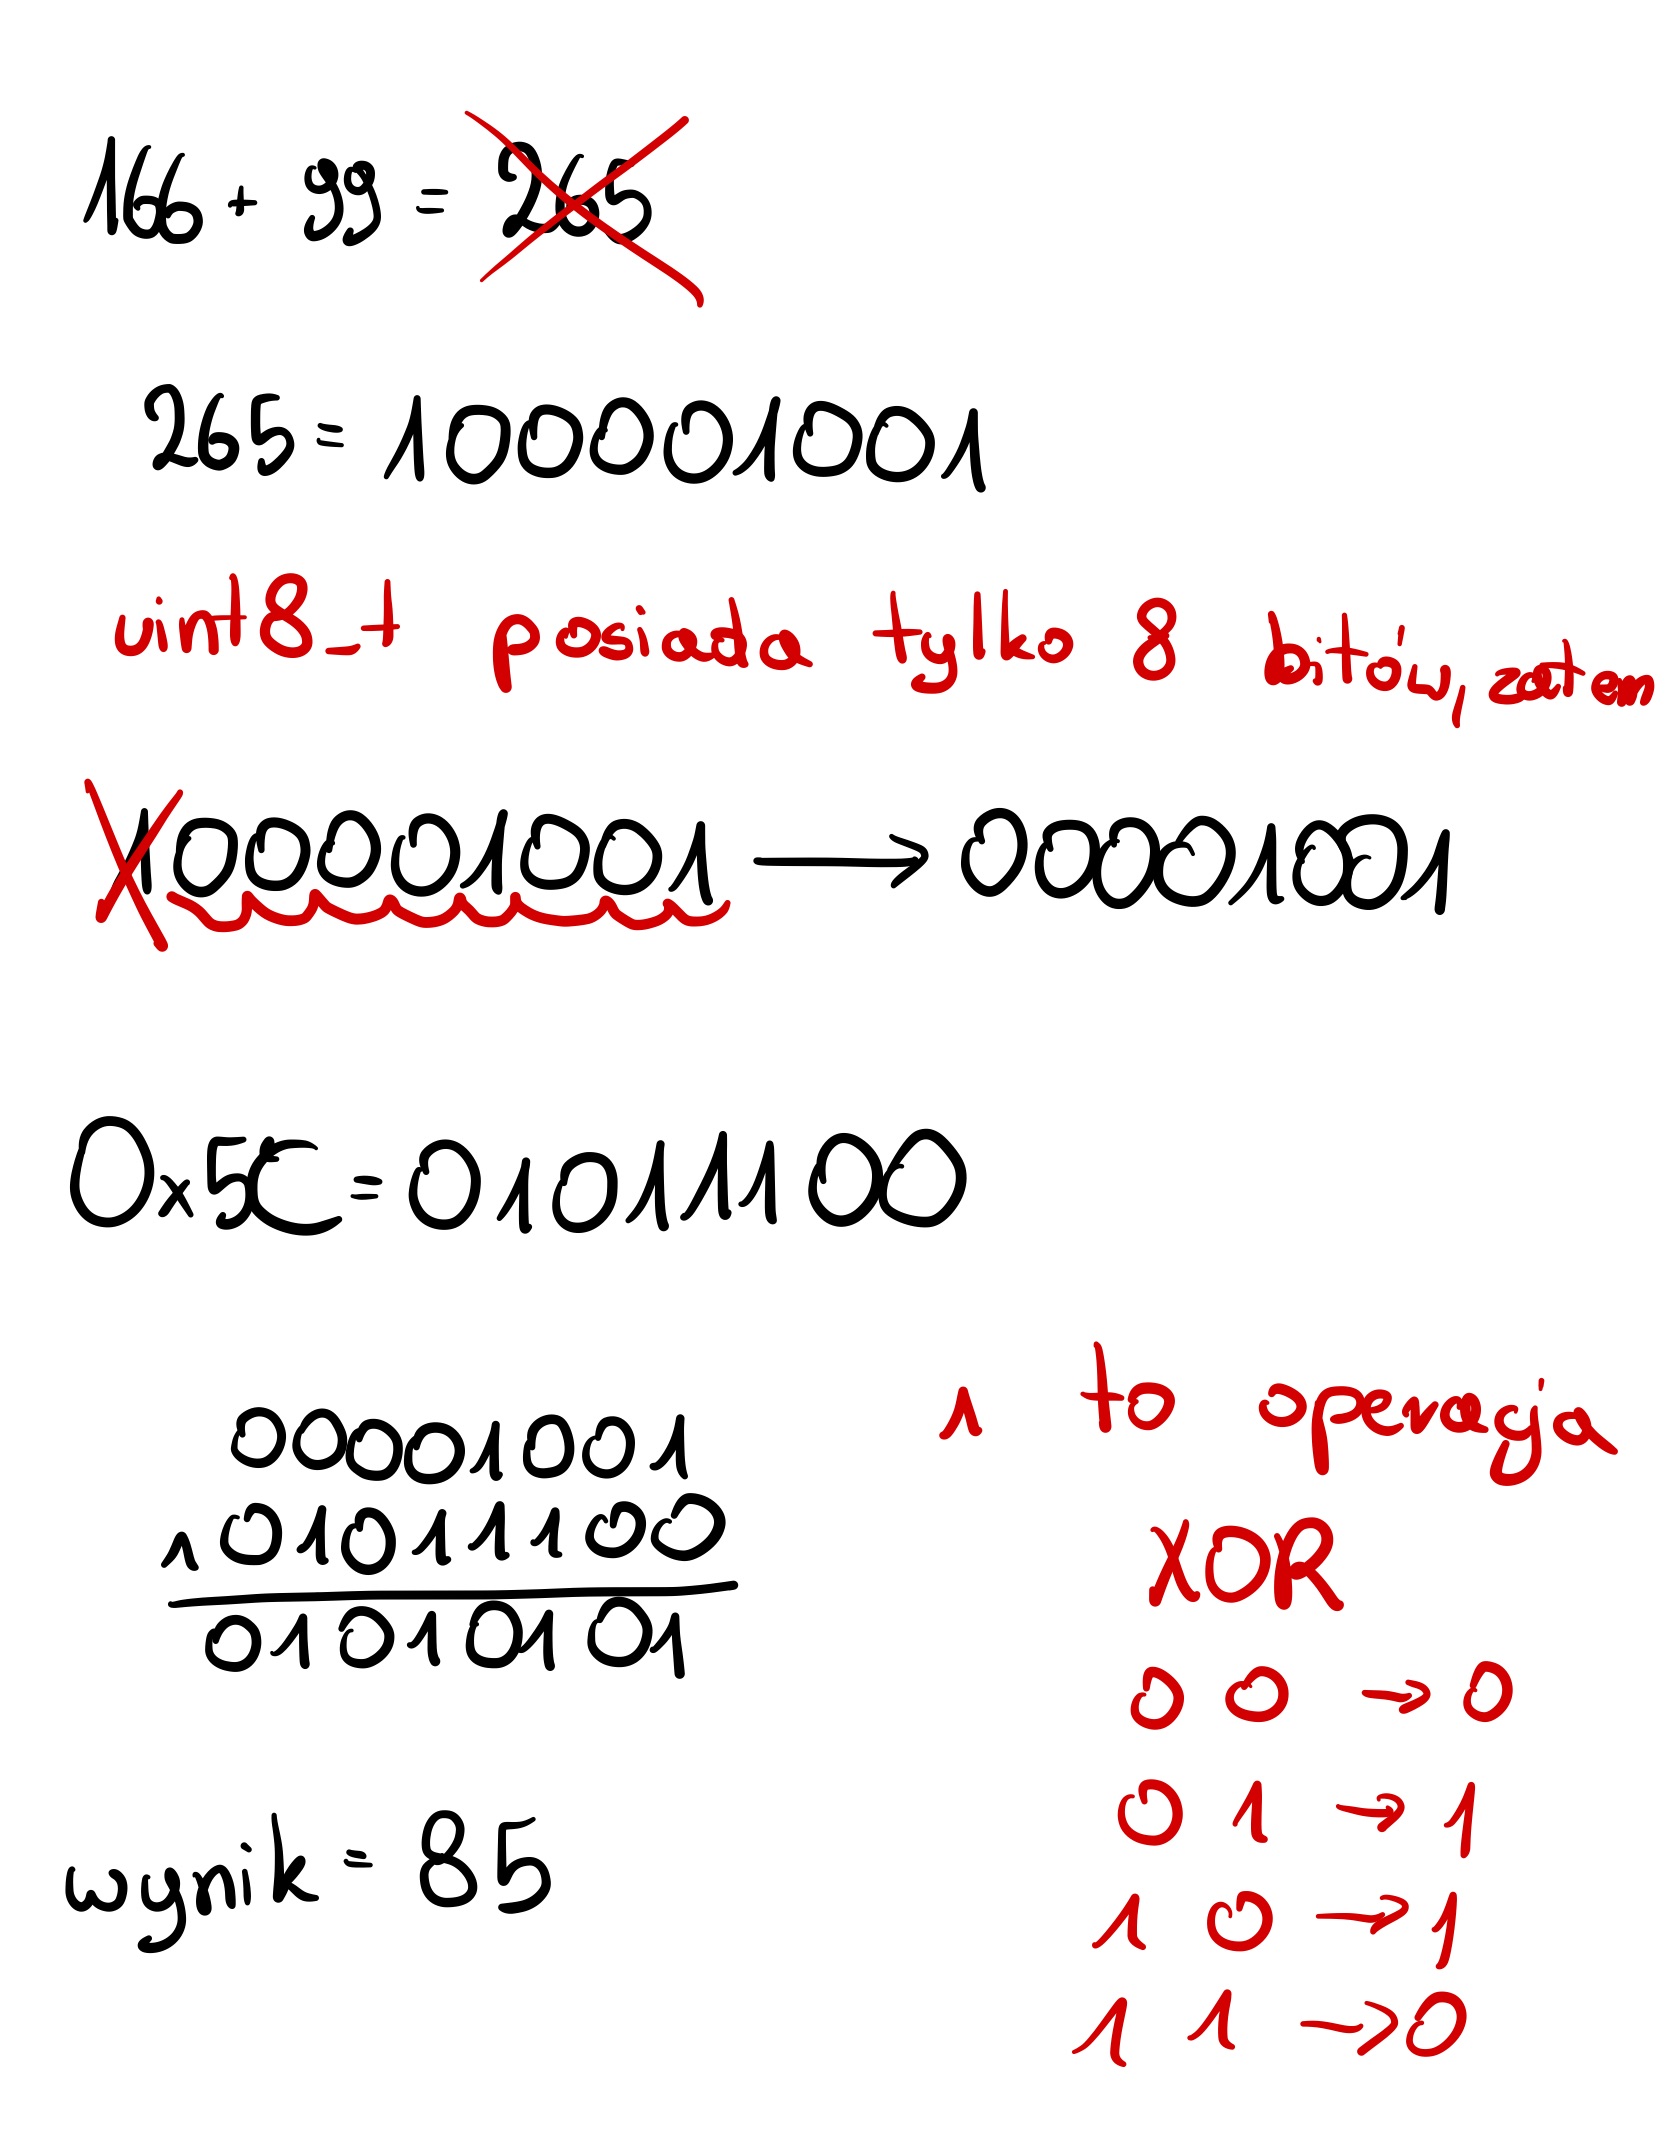 166 + 99 = 265
265 = 100001001
uint8_t posiada tylko 8 bitów, zatem
100001001 → 00001001
0x5C = 01011100
00001001
^ 01011100
01010101
wynik = 85
^ to operacja
XOR
0 0 → 0
0 1 → 1
1 0 → 1
1 1 → 0